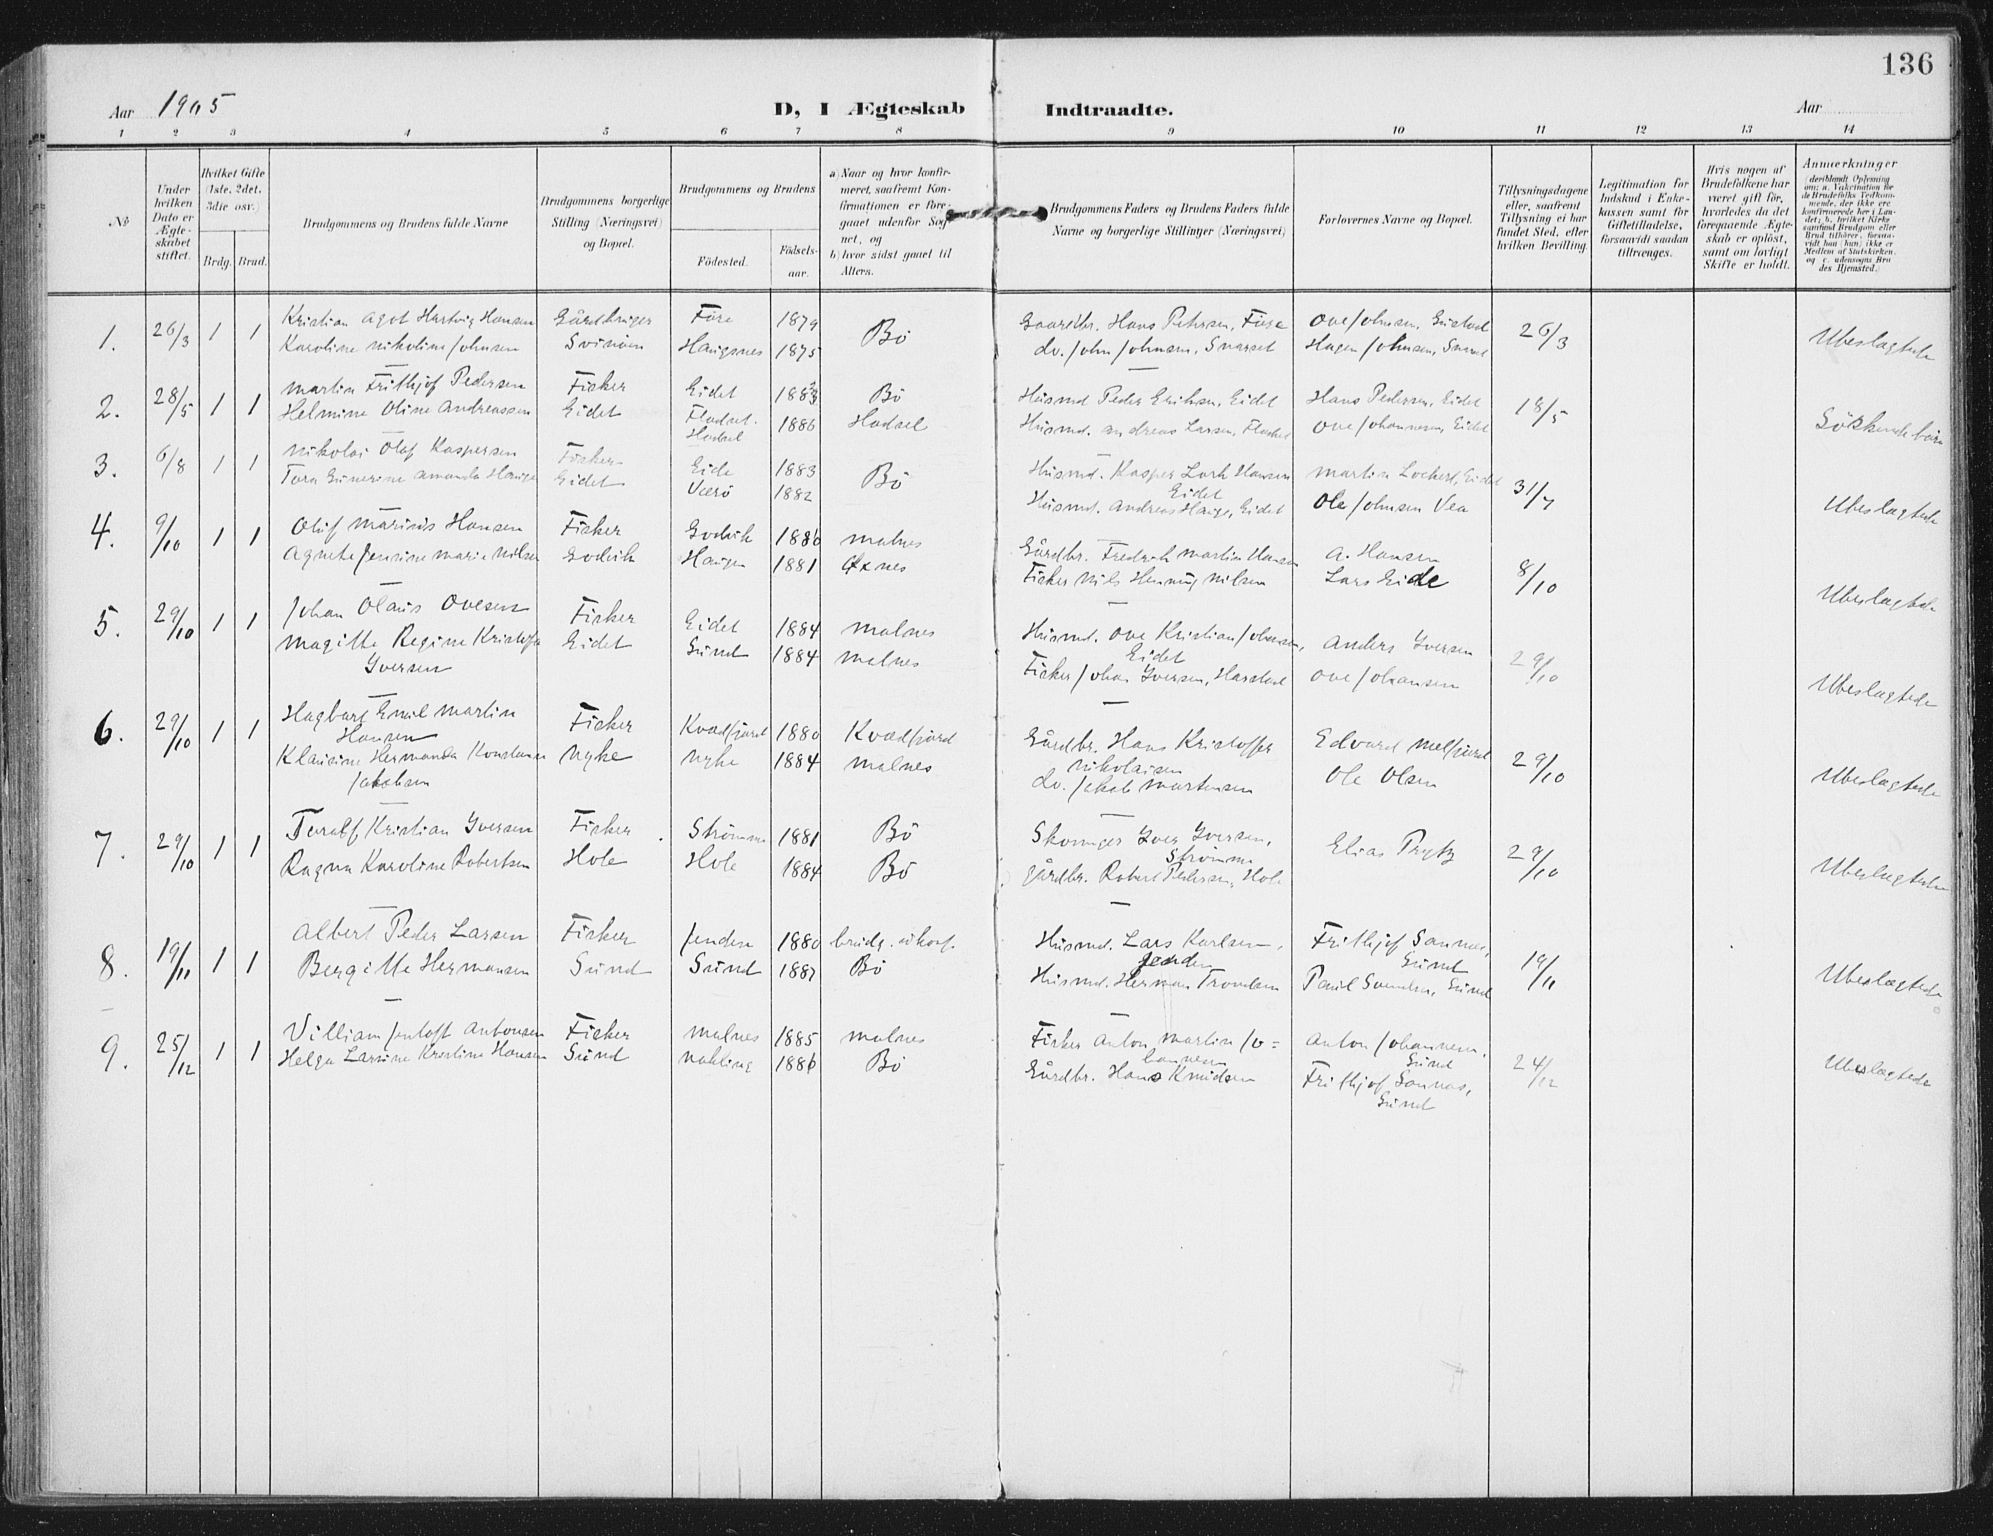 136
Aar 1905 D, I Ægteskab Indtraadte. Aar
1 2 3 4 5 6 7 8 9 10 11 12 13 14
No
Under hvilken Dato er Ægteskabet stiftet.
Hvilket Gifte (1ste, 2det, 3die osv.)
Brdg. Brud.
Brudgommens og Brudens fulde Navne
Brudgommens borgerlige Stilling (Næringsvei) og Bopæl.
Brudgommens og Brudens
Födested.
Födselsaar.
a) Naar og hvor konfirmeret, saafremt Konfirmationen er foregaaet udenfor Sognet, og
b) hvor sidst gaaet til Alters.
Brudgommens Faders og Brudens Faders fulde Navne og borgerlige Stillinger (Næringsvei)
Forlovernes Navne og Bopæl.
Tillysningsdagene eller, saafremt Tillysning ei har fundet Sted, efter hvilken Bevilling.
Legitimation for Indskud i Enkekassen samt for Giftetilladelse, forsaavidt saadan tiltrænges.
Hvis nogen af Brudefolkene har været gift för, hvorledes da det foregaaende Ægteskab er oplöst, samt om lovligt Skifte er holdt.
Anmærkninger
(deriblandt Oplysning om: a. Vakcination for de Brudefolks Vedkommende, der ikke ere konfirmerede her i Landet; b. hvilket Kirkesamfund Brudgom eller Brud tilhörer, forsaavidt han (hun) ikke er Medlem af Statskirken, og c. udensogns Brudes Hjemsted.)
1. 26/3 1 1 Kristian Agot Hartvig Hansen GårdbrugerFöre 1879 Bö Gaardbr. Hans Petersen, Före Ove Johnsen, 26/3 Ubeslægtede
Karoline Nikoline Johnsen Svinöen Haugsnes 1875 do. John Johnsen, Hagen Johnsen,
2. 28/5 1 1 Martin Frithjof Pedersen Fisker Eidet 1883 Bö Husmd Peder Eriksen, Eidet Hans Pedersen, Eidet 18/5 Sökkendebörn
Helmine Oline Andreassen Eidet Hadsel 1886 Hadsel Husmd. Andreas Larsen, Ove Johannesen, Eidet
3. 6/8 1 1 Nikolai Olaf Kaspersen Fisker Eide 1883 Bö Husmd. Kasper Lork Hansen Eidet Martin Lockert, Eidet 31/7 Ubeslægtede
Tora Amanda Hauge Eidet Værö 1882 Husmd. Andreas Hauge, Eidet Ole Johnsen Vea
4. 9/10 1 1 Oluf Marinus Hansen Fisker Godvik 1886 Malnes Gårdbr. Fredrik Martin Hansen A. Hansen 8/10 Ubeslægtede
Agnete Jensine Marie Nilsen Godvik Haugen 1881 Öxnes Fisker Nils Henning Nilsen Lars Eide
5. 29/10 1 1 Johan Olaus Ovesen Fisker Eidet 1884 Malnes Husmd. Ove Kristian Johansen, Eidet Anders Iversen 29/10 Ubeslægtede
Magitte Regine Iversen Eidet Sund 1884 Malnes Fisker Johan Iversen, Ove Johansen
6. 29/10 1 1 Hagbart Emil Martin Hansen Fisker Kvædfjord 1880 Kvædfjord Gårdbr. Hans Kristoffer Nikolaisen Edvard Melfjord 29/10 Ubeslægtede
Klausine Hermanda Konstanse Jakobsen Nyke Nyke 1884 Malnes do. Jakob Martensen Ole Olsen
7. 29/10 1 1 Toralf Kristian Iversen Fisker Strömme 1881 Bö Skomager Iver Iversen, Strömme Elias Prytz 29/10 Ubeslægtede
Ragna Karoline Robertsen Hole Hole 1884 Bö gårdbr. Robert Pedersen, Hole
8. 19/11 1 1 Albert Peder Larsen Fisker Jenden 1880 brudg. Husmd. Lars Karlsen, Jenden Frithjof Sannes, Sund 19/11 Ubeslægtede
Bergitte Hermansen Sund Sund 1887 Bö Husmd. Herman Trondsen Paul Svendsen, Sund
9. 25/12 1 1 Villiam Jentoft Antonsen Fisker Malnes 1885 Malnes Fisker Anton Martin Jo=hannesen Anton Johannesen, Sund 24/12 Ubeslægtede
Helga Larsine Kristine Hansen Sund 1886 Bö Gårdbr. Hans Knudsen Frithjof Sannes, Sund